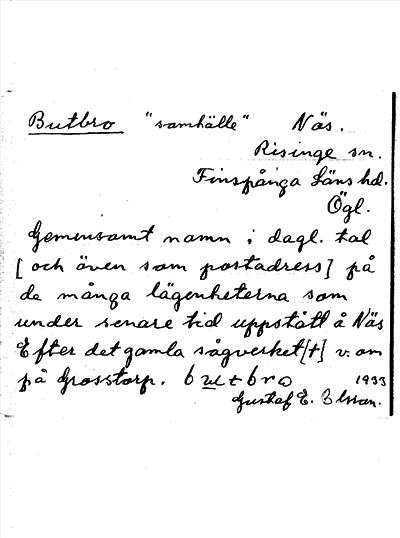 Butbro "samhälle" Näs.
Risinge sn.
Finspånga Läns hd.
Ögl.
Gemensamt namn i dagl. tal
[och även som postadress] på
de många lägenheterna som
under senare tid uppstått å Näs
Efter det gamla sågverket [+] v. om
på Grosstorp. butbro 1933
Gustaf E. Olsson.